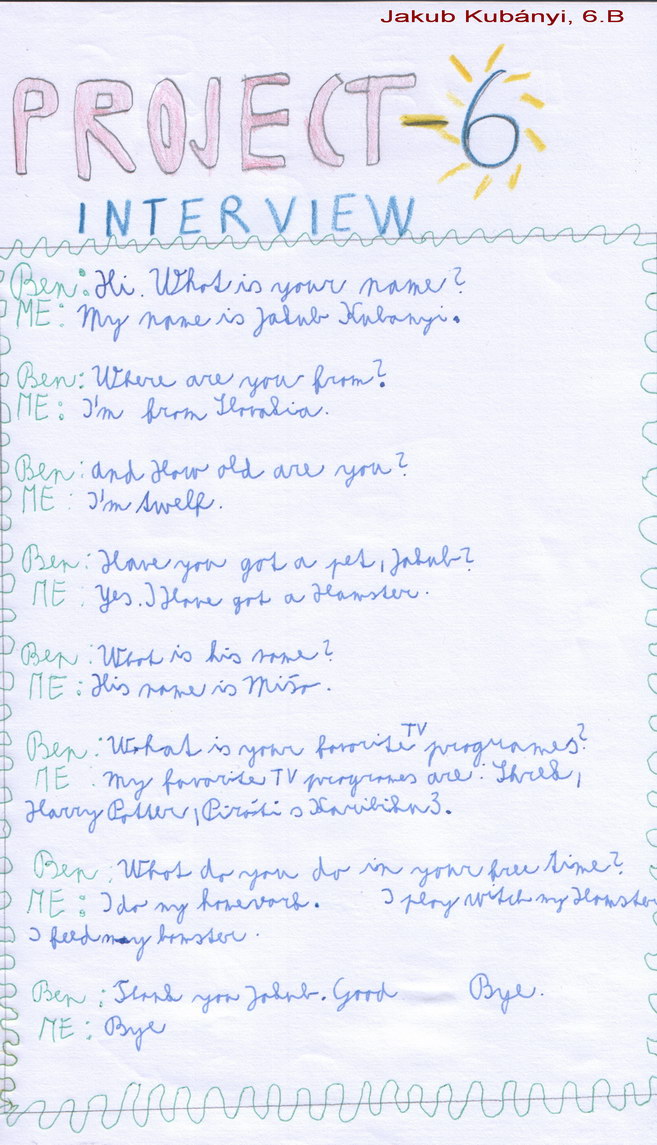 Jakub Kubányi, 6.B
PROJECT-6
INTERVIEW
Ben: Hi. What is your name?
ME: My name is Jakub Kubanyi.
Ben: Where are you from?
ME: I'm from Slovakia.
Ben: and How old are you?
ME: I'm twelf.
Ben: Have you got a pet, Jakub?
ME: Yes. I Have got a Hamster.
Ben: What is his name?
ME: His name is Mišo.
Ben: What is your favorite TV programes?
ME: My favorite TV programes are: Shrek,
Harry Potter, Piráti s Karibiku 3.
Ben: What do you do in your free time?
ME: I do my homevork. I play witch my Hamster
I feed my hamster.
Ben: Thank you Jakub. Good Bye.
ME: Bye